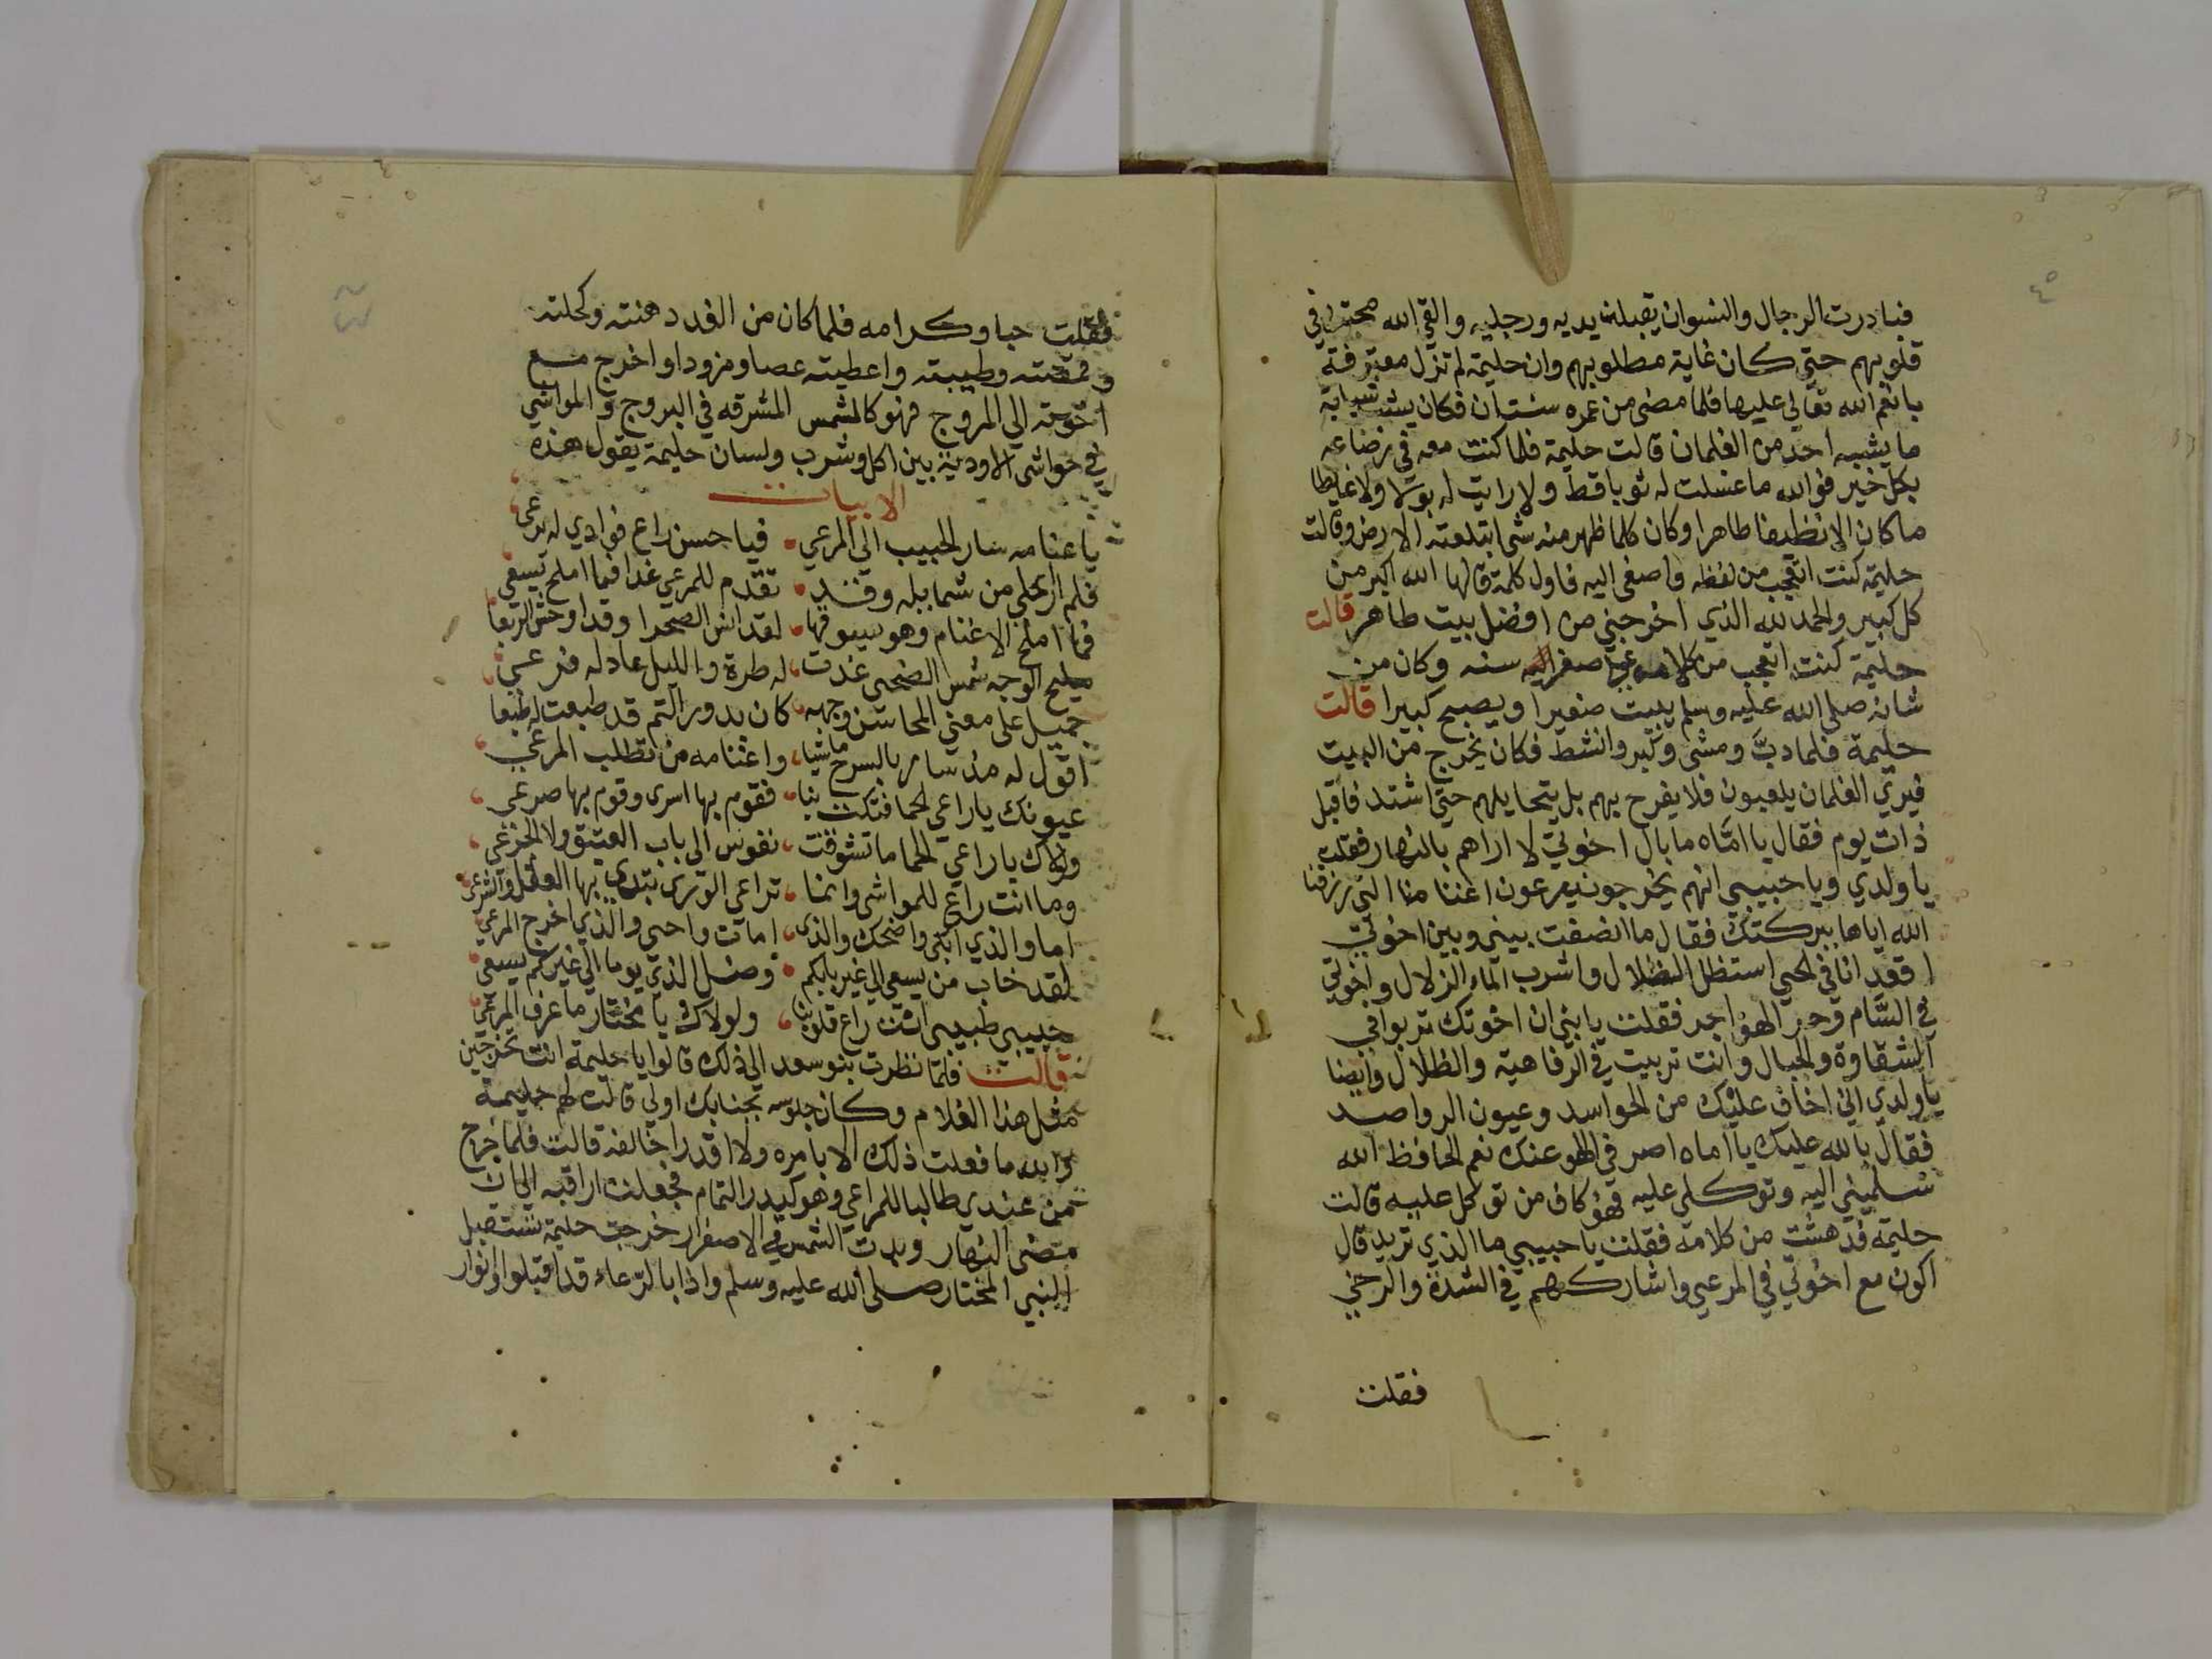 فبادرت الرجال والنسوان يقبلن يديه ورجليه والقي الله محبته في
قلوبهم حتي كان غاية مطلوبهم وان حليمة لم تزل معترفة
بانعم الله تعالي عليها فلما مضي من عمره سنتان فكان يشب شبابا
ما يشبه احد من الغلمان قالت حليمة فلما كنت معه في رضاعه
بكل خير فوالله ما غسلت له ثوبا قط ولا رايت له بولا ولا غايطا
ما كان الا نظيفا طاهرا وكان كلما ظهر منه شي ابتلعته الارض وقالت
حليمة كنت اتعجب من لفظه واصغي اليه فاول كلمة قالها الله اكبر من
كل كبير والحمد لله الذي اخرجني من افضل بيت طاهر قالت
حليمة كنت اتعجب من كلامه صغر سنه وكان من
شانه صلي الله عليه وسلم يبيت صغيرا ويصبح كبيرا قالت
حليمة فلما دبَّ ومشي وكبر وانشط فكان يخرج من البيت
فيري الغلمان يلعبون فلا يفرح بهم بل يتحايلهم حتي اشتد فاقبل
ذات يوم فقال يا امّاه ما بال اخوتي لا اراهم بالنهار فقلت
يا ولدي ويا حبيبي انهم يخرجون يرعون اغنامنا التي رزقنا
الله اياها ببركتك فقال ما انصفت بيني وبين اخوتي
اقعد انا في الحي استظل الظلال واشرب الماء الزلال واخوتي
في السَّام وحر الهواجر فقلت يا بني ان اخوتك تربوا في
الشقاوة والجبال وانت تربيت في الرفاهية والظلال وايضا
يا ولدي اني اخاف عليك من الحواسد وعيون الرواصد
فقال بالله عليك يا اماه اصرفي الهم عنك نعم الحافظ الله
سلميني اليه وتوكلي عليه فهو كاف من توكل عليه قالت
حليمة فدهشت من كلامه فقلت يا حبيبي ما الذي تريد قال
اكون مع اخوتي في المرعي واشاركهم في الشدة والرخي
فقلت
فقلت حبا وكرامه فلما كان من الغد دهنته وكحلته
وقمصته وطيبته واعطيته عصا ومزودا واخرج مع
اخوته الي المروج فهو كالشمس المشرقه في البروج والمواشي
في حواشي الاودية بين اكل وشرب ولسان حليمة يقول هذه
الابيات
باغنامه سار الحبيب الي المرعي فيا حسن راع فوادي له يرعي
فلم ار احلي من شمايله وقد تقدم للمرعي غدا فيا املح يسعي
فما املح الاغنام وهو يسوقها لقد انس الصحرا وقد اوحش الربعا
مليح الوجه شمس الضحي غدت له طرة والليل عاد له فرعي
جميل علي معني المحاسن وجهه كان بدور التم قد طبعت له طبعا
اقول له مذ سار بالسرح ماشيا واغنامه من تطلب المرعي
عيونك يا راعي الحما فتكت بنا فقوم بها اسري وقوم بها صرعي
ولولاك يا راعي الحما ما تشوقت نفوس الي باب العتيق ولا الجزعي
وما انت راع للمواشي وانما تراعي الوري بها العقل والشرعي
اما والذي ابكي واضحك والذي امات واحيي والذي اخرج المرعي
لقد خاب من يسعي الي غير بابكم وضل الذي يوما الي غيركم يسعي
حبيبي طبيبي انت راع قلوبنا ولولاك يا مختار ما عرف المرعي
قالت فلمّا نظرت بنو سعد الي ذلك قالوا يا حليمة انت تخرجين
مثل هذا الغلام وكان جلوسه بجنابك اولي قالت لهم حليمة
والله ما فعلت ذلك الا بامره ولا اقدر اخالفه قالت فلما خرج
من عندي طالبا للمراعي وهو كبدر التمام فجعلت اراقبه الي ان
مضي النهار وبدت الشمس في الاصفرار خرجت حليمة تستقبل
النبي المختار صلي الله عليه وسلم واذا بالرعاء قد اقبلوا وانوار